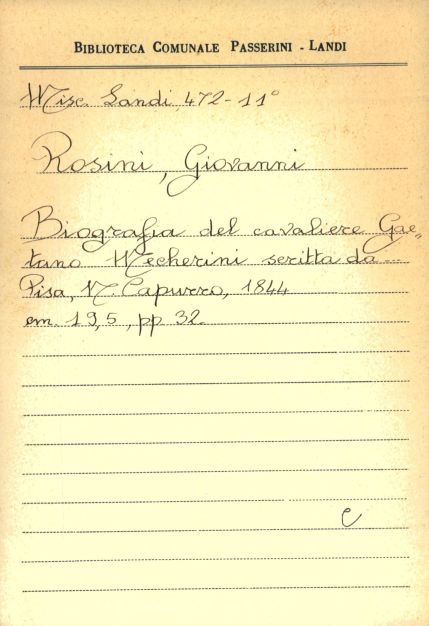 BIBLIOTECA COMUNALE PASSERINI - LANDI
Misc. Landi, 472-11°
Rosini, Giovanni
Biografia del cavaliere Gae„
tano Mecherini scritta da...
Pisa, N. Capurro, 1844
cm. 19,5, pp 32.
C